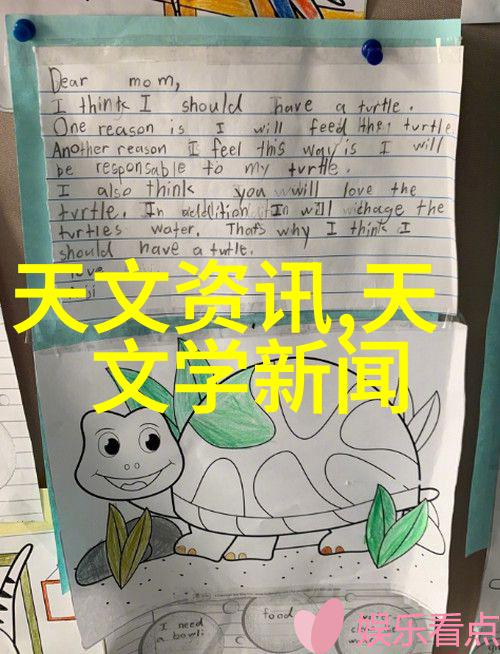 Dear mom,
I think I should have a turtle.
One reason is I will feed the turtle.
Another reason I feel this way is I will
be responsable to my turtle.
I also think you will love the
turtle. In addition I will chage the
turtles water. That's why I think I
should have a turtle.
love
天文资讯,天
文学新闻
I need
a bowl
food
娱乐看点